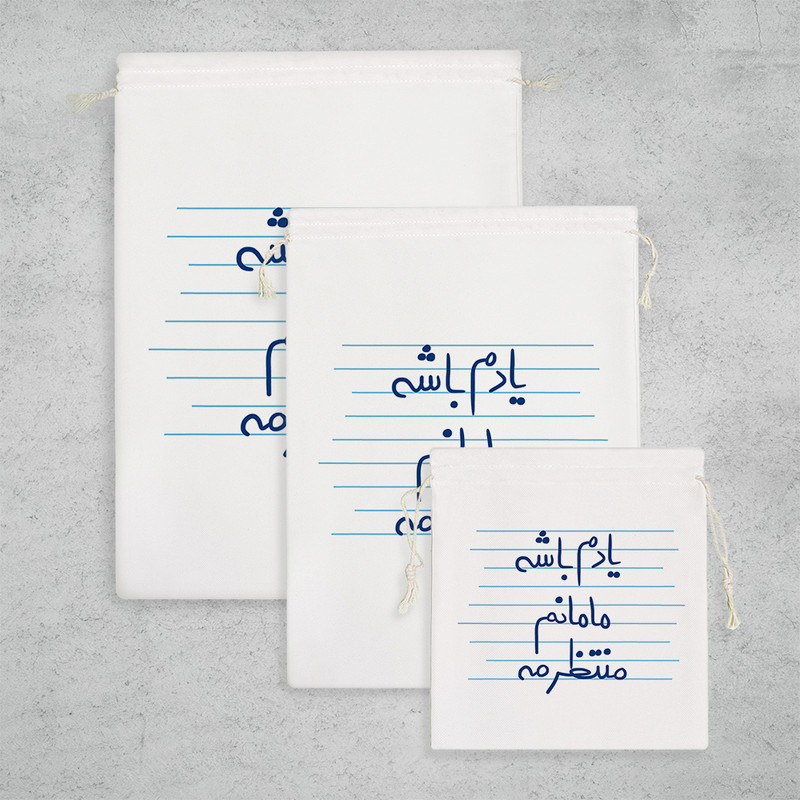 یادم باشه
یادم باشه
مامانم
منتظرمه